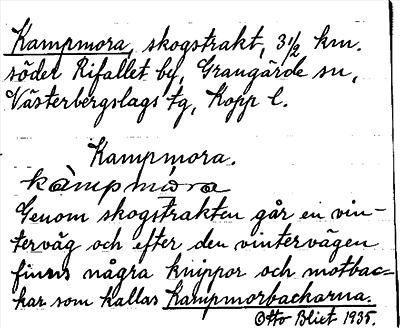 Kampmora, skogstrakt, 3½ km.
söder Rifallet by, Grangärde sn,
Västerbergslags tg, Kopp l.
Kampmora.
kàmpmóra
Genom skogstrakten går en vin-
terväg och efter den vintervägen
finns några knippor och motbac-
kar som kallas Kampmorbackarna.
Otto Blixt 1935.